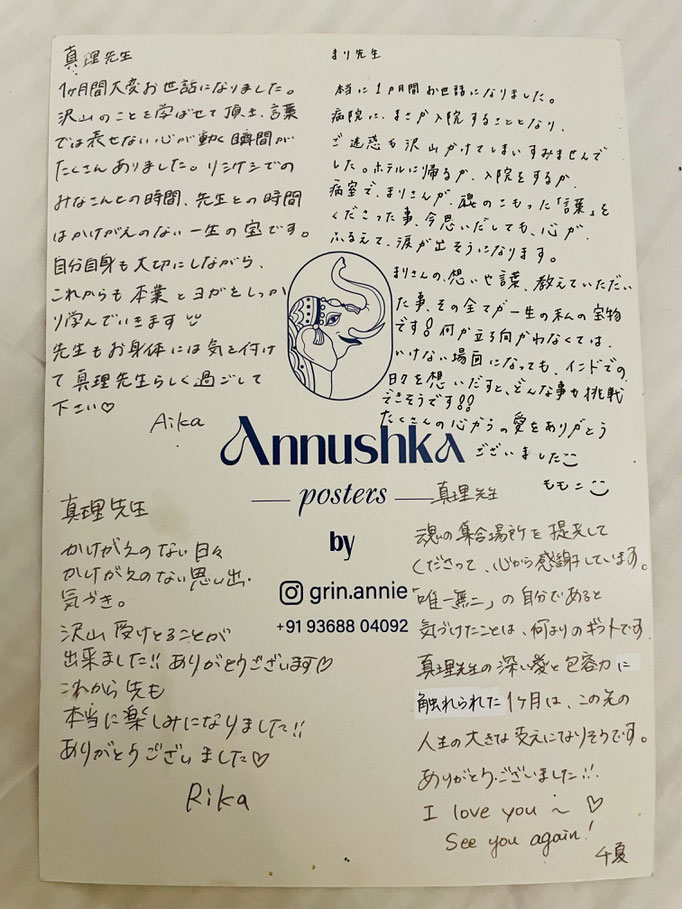 真理先生
1ヶ月間大変お世話になりました。
沢山のことを学ばせて頂き、言葉
では表せない心が動く瞬間が
たくさんありました。リシケシでの
みなさんとの時間、先生との時間
はかけがえのない一生の宝です。
自分自身も大切にしながら、
これからも本業とヨガをしっか
り学んでいきます
先生もお身体には気を付け
て真理先生らしく過ごして
下さい♡
Aika
まり先生
本当に1ヶ月間お世話になりました。
病院に、まさか入院することとなり、
ご迷惑も沢山かけてしまいすみませんで
した。ホテルに帰るか、入院をするか、
病室で、まりさんが、魂のこもった「言葉」を
くださった事、今思いだしても、心が、
ふるえて、涙が出そうになります。
まりさんの、想いや言葉、教えていただい
た事、その全てが一生の私の宝物
です!何か立ち向かわなくては、
いけない場面になっても、インドでの
日々を想いだすと、どんな事も挑戦
できそうです!!
たくさんの心からの愛をありがとう
ございました
ももこ
Annushka
posters
by
grin.annie
+91 93688 04092
真理先生
かけがえのない日々
かけがえのない思い出・
気づき。
沢山受けとることが
出来ました!!ありがとうございます♡
これから先も
本当に楽しみになりました!!
ありがとうございました♡
Rika
真理先生
魂の集合場所を提示して
くださって、心から感謝しています。
「唯一無二」の自分であると
気づけたことは、何よりのギフトです
真理先生の深い愛と包容力に
触れられた1ヶ月は、この先の
人生の大きな支えになりそうです。
ありがとうございました!!
I love you 〜 ♡
See you again!
千夏